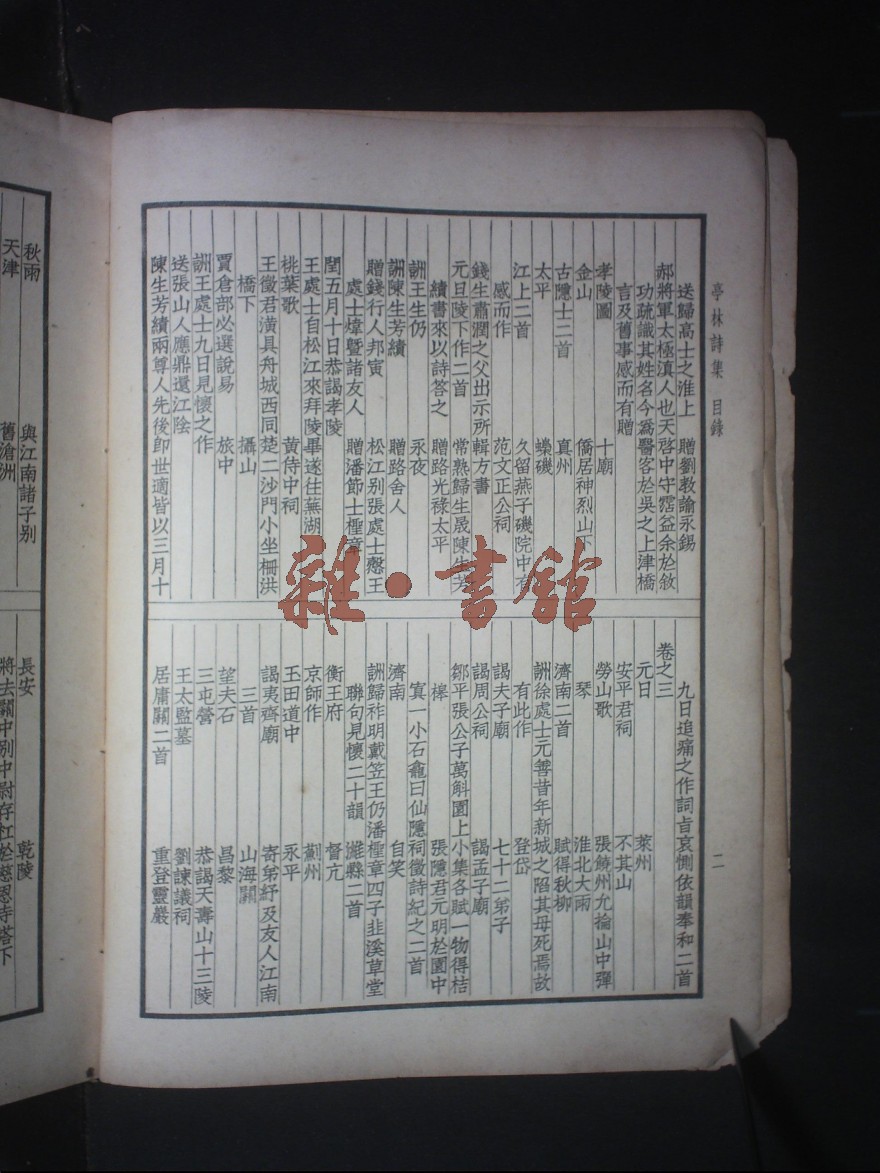 亭林詩集 目錄
二
送歸高士之淮上 贈劉教諭永錫
郝將軍太極滇人也天啓中守霑益余於敘
功疏識其姓名今爲醫客於吳之上津橋
言及舊事感而有贈
孝陵圖 十廟
金山 僑居神烈山下
古隱士二首 真州
太平 蟂磯
江上二首 久留燕子磯院中有
感而作 范文正公祠
錢生肅潤之父出示所輯方書
元日陵下作二首 常熟歸生晟陳生芳
績書來以詩答之 贈路光祿太平
詶王生仍 永夜
詶陳生芳績 贈路舍人
贈錢行人邦寅 松江別張處士慤王
處士煒暨諸友人 贈潘節士檉章
閏五月十日恭謁孝陵
王處士自松江來拜陵畢遂往蕪湖
桃葉歌 黃侍中祠
王徵君潢具舟城西同楚二沙門小坐柵洪
橋下 攝山
賈倉部必選說易 旅中
詶王處士九日見懷之作
送張山人應鼎還江陰
陳生芳績兩尊人先後卽世適皆以三月十
九日追痛之作詞旨哀惻依韻奉和二首
卷之三
元日 萊州
安平君祠 不其山
勞山歌 張饒州允掄山中彈
琴 淮北大雨
濟南二首 賦得秋柳
詶徐處士元善昔年新城之陷其母死焉故
有此作 登岱
謁夫子廟 七十二弟子
謁周公祠 謁孟子廟
鄒平張公子萬斛園上小集各賦一物得桔
槹 張隱君元明於園中
寘一小石龕曰仙隱祠徵詩紀之二首
濟南 自笑
詶歸祚明戴笠王仍潘檉章四子韭溪草堂
聯句見懷二十韻 濰縣二首
衡王府 督亢
京師作 薊州
玉田道中 永平
謁夷齊廟 寄弟紓及友人江南
三首 山海關
望夫石 昌黎
三屯營 恭謁天壽山十三陵
王太監墓 劉諫議祠
居庸關二首 重登靈巖
秋雨 與江南諸子別
天津 舊滄洲
長安 乾陵
將去關中別中尉存杠於慈恩寺塔下
雜·書館